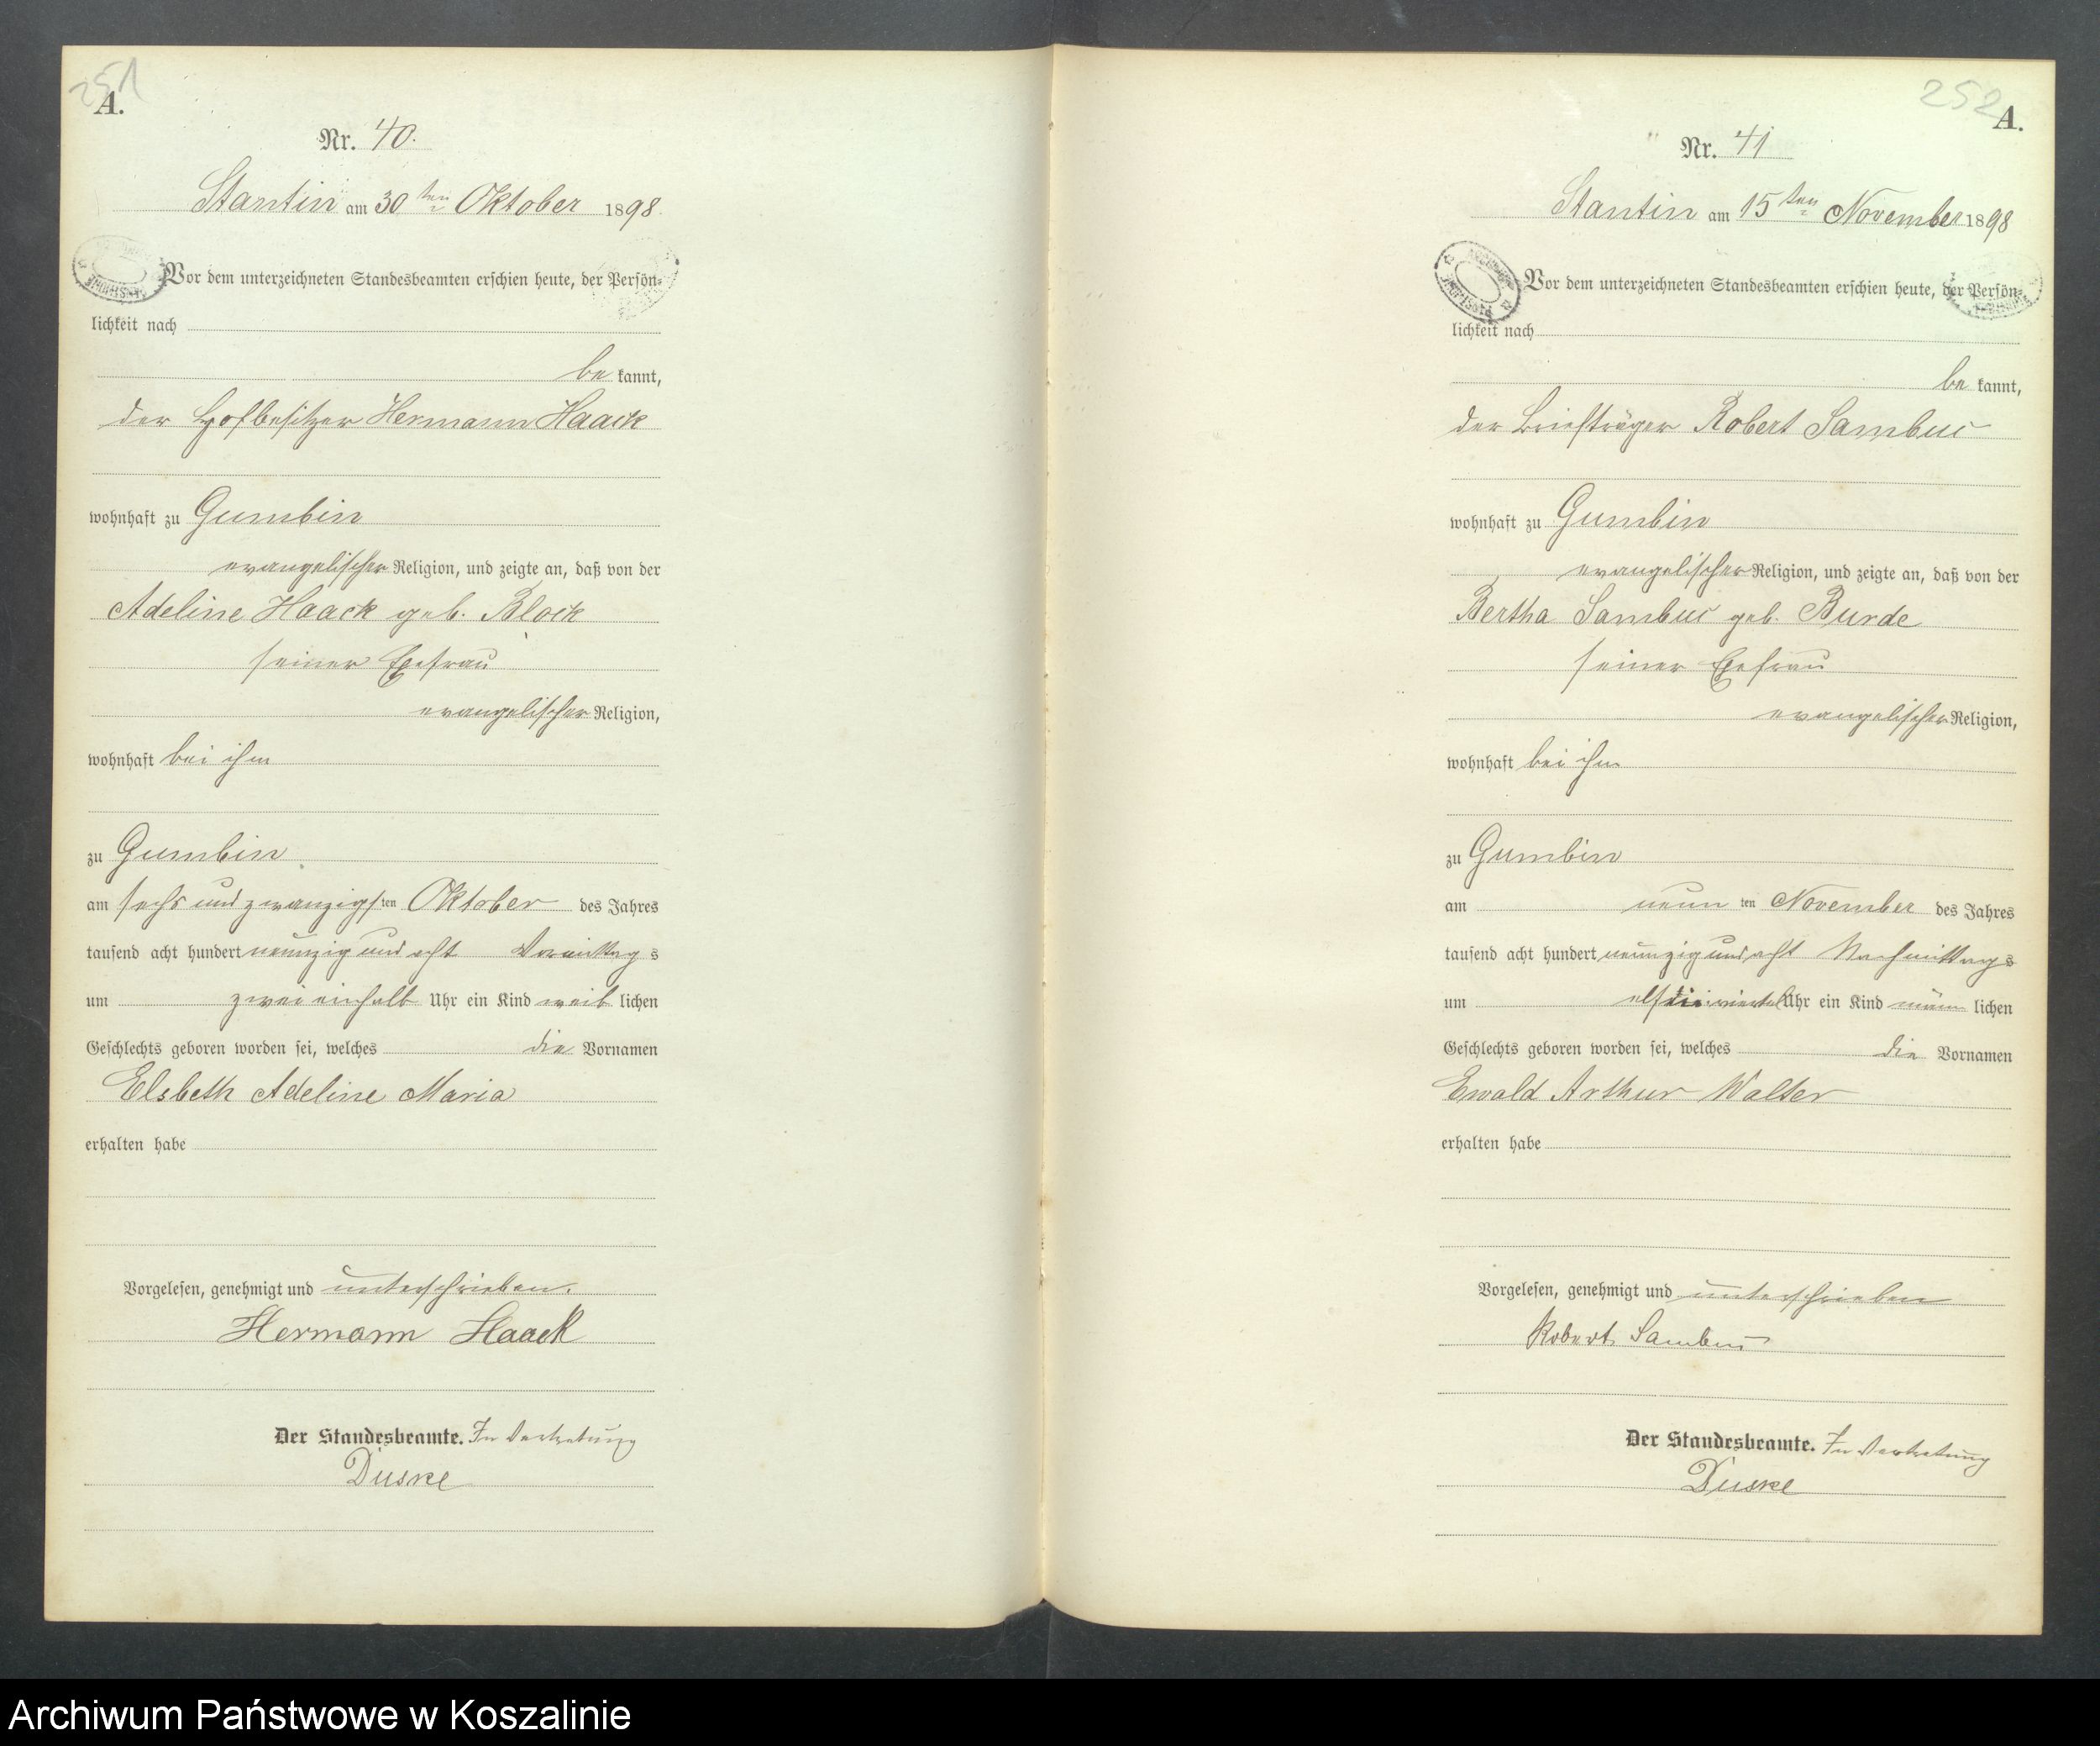 251
A.
Nr. 40.
Stantin am 30ten Oktober 1898.
Vor dem unterzeichneten Standesbeamten erschien heute, der Persön-
lichkeit nach
be kannt,
der Hofbesitzer Hermann Haack
wohnhaft zu Gumbin
evangelischer Religion, und zeigte an, daß von der
Adeline Haack geb. Block
seiner Ehefrau
evangelischer Religion,
wohnhaft bei ihm
zu Gumbin
am sechs und zwanzigsten Oktober des Jahres
tausend acht hundert neunzig und acht Vormittags
um zwei einhalb Uhr ein Kind weib lichen
Geschlechts geboren worden sei, welches die Vornamen
Elsbeth Adeline Maria
erhalten habe
Vorgelesen, genehmigt und unterschrieben.
Hermann Haack
Der Standesbeamte. In Vertretung
Duske
252
A.
Nr. 41
Stantin am 15ten November 1898
Vor dem unterzeichneten Standesbeamten erschien heute, der Persön-
lichkeit nach
be kannt,
der Briefträger Robert Sambuc
wohnhaft zu Gumbin
evangelischer Religion, und zeigte an, daß von der
Bertha Sambuc geb. Burde
seiner Ehefrau
evangelischer Religion,
wohnhaft bei ihm
zu Gumbin
am neun ten November des Jahres
tausend acht hundert neunzig und acht Nachmittags
um elf viertel Uhr ein Kind männ lichen
Geschlechts geboren worden sei, welches die Vornamen
Ewald Arthur Walter
erhalten habe
Vorgelesen, genehmigt und unterschrieben
Robert Sambuc
Der Standesbeamte. In Vertretung
Duske
Archiwum Państwowe w Koszalinie